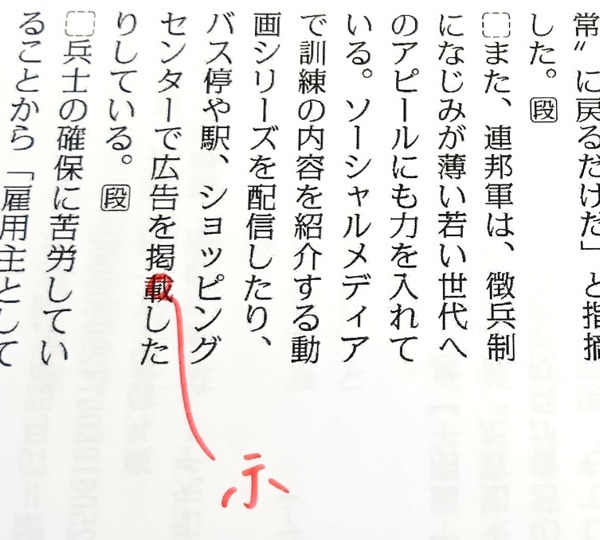 常〟に戻るだけだ」と指摘
した。段
また、連邦軍は、徴兵制
になじみが薄い若い世代へ
のアピールにも力を入れて
いる。ソーシャルメディア
で訓練の内容を紹介する動
画シリーズを配信したり、
バス停や駅、ショッピング
センターで広告を掲載した
りしている。段
兵士の確保に苦労してい
ることから「雇用主として
示